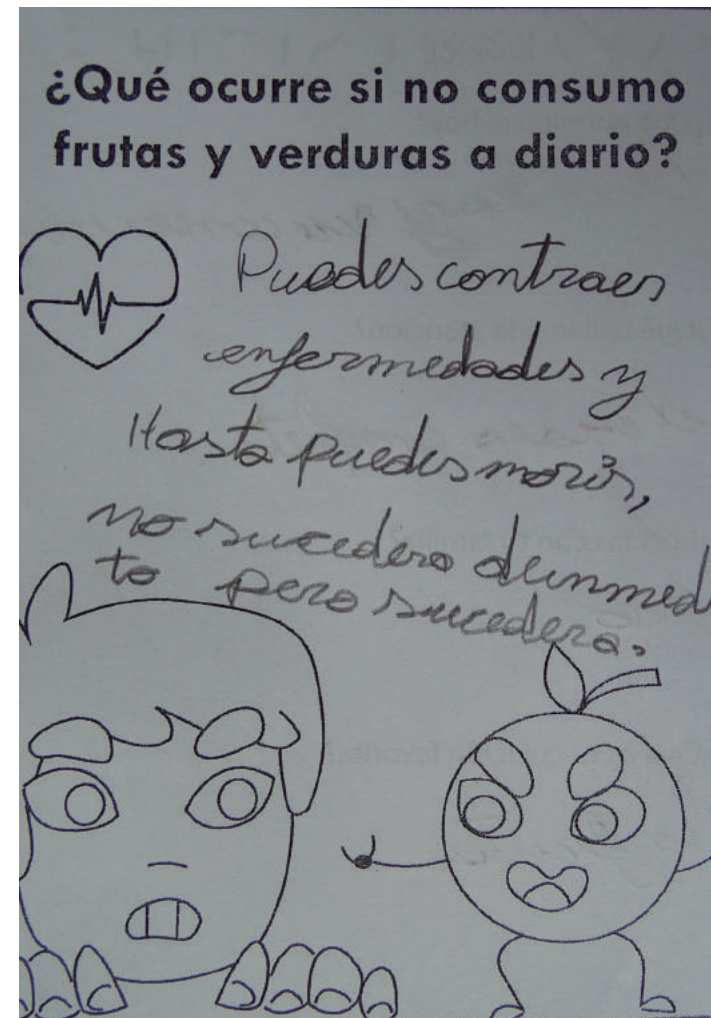 ¿Qué ocurre si no consumo
frutas y verduras a diario?
Puedes contraer
enfermedades y
Hasta puedes morir,
no sucedera deinmed
to pero sucedera.